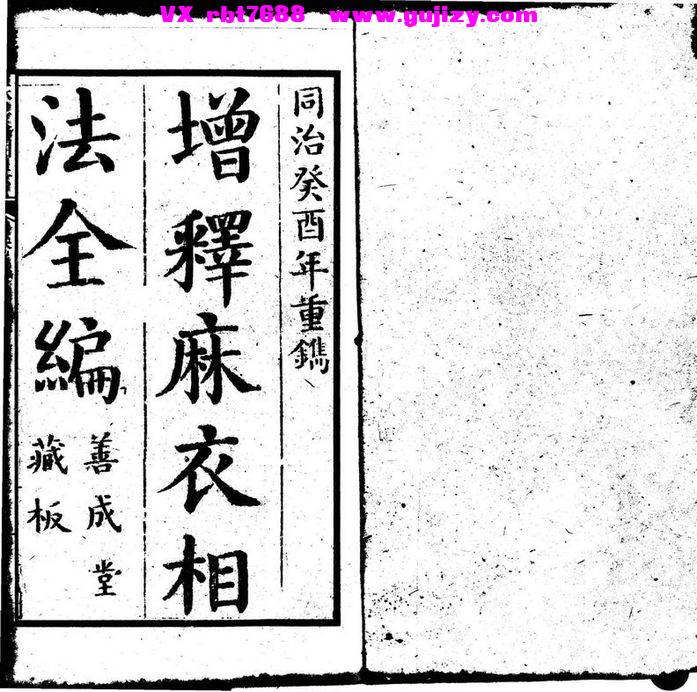 VX rbt7688 www.gujizy.com
同治癸酉年重鐫
增釋麻衣相
法全編
善成堂
藏板